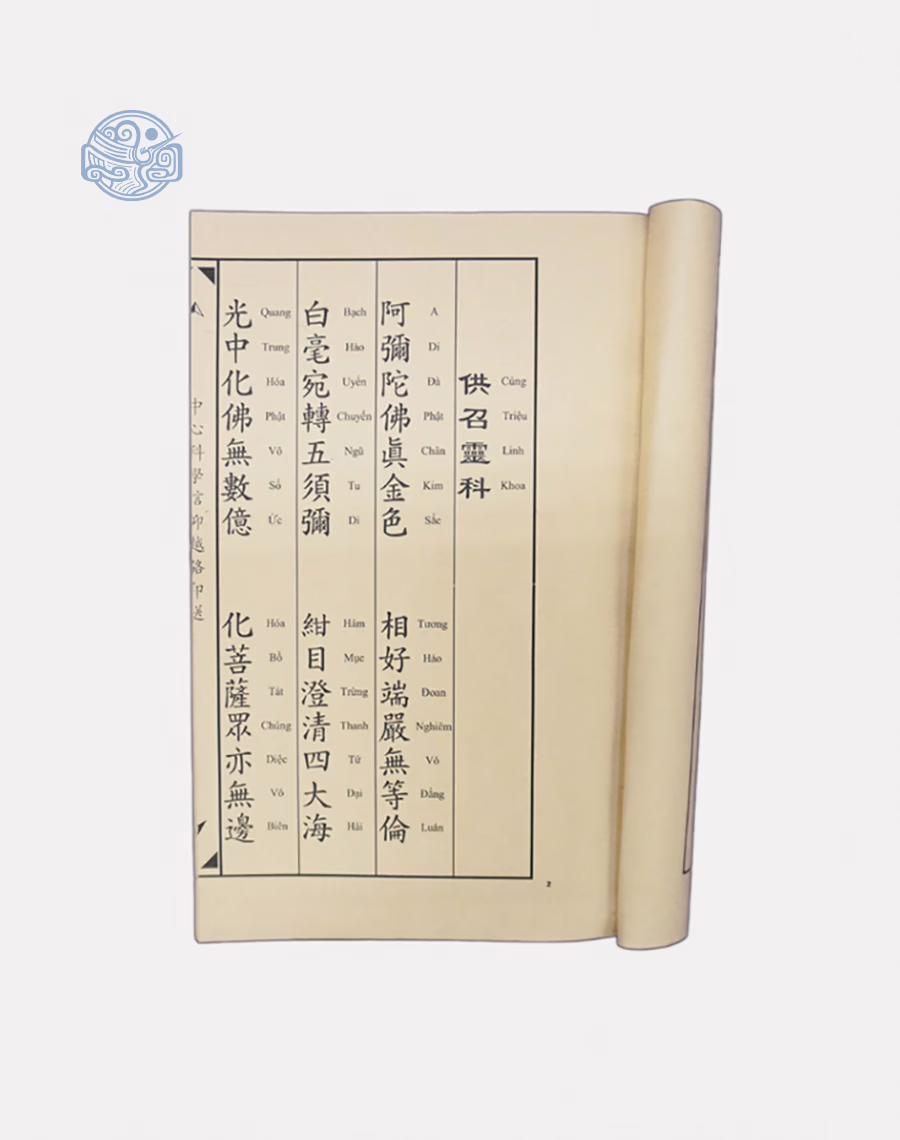 供召靈科
Cúng Triệu Linh Khoa
阿彌陀佛眞金色
A Di Đà Phật Chân Kim Sắc
相好端嚴無等倫
Tương Hảo Đoan Nghiêm Vô Đẳng Luân
白毫宛轉五須彌
Bạch Hào Uyển Chuyển Ngũ Tu Di
紺目澄清四大海
Hám Mục Trừng Thanh Tứ Đại Hải
光中化佛無數億
Quang Trung Hóa Phật Vô Số Ức
化菩薩眾亦無邊
Hóa Bồ Tát Chúng Diệc Vô Biên
中心科學言
印送
2